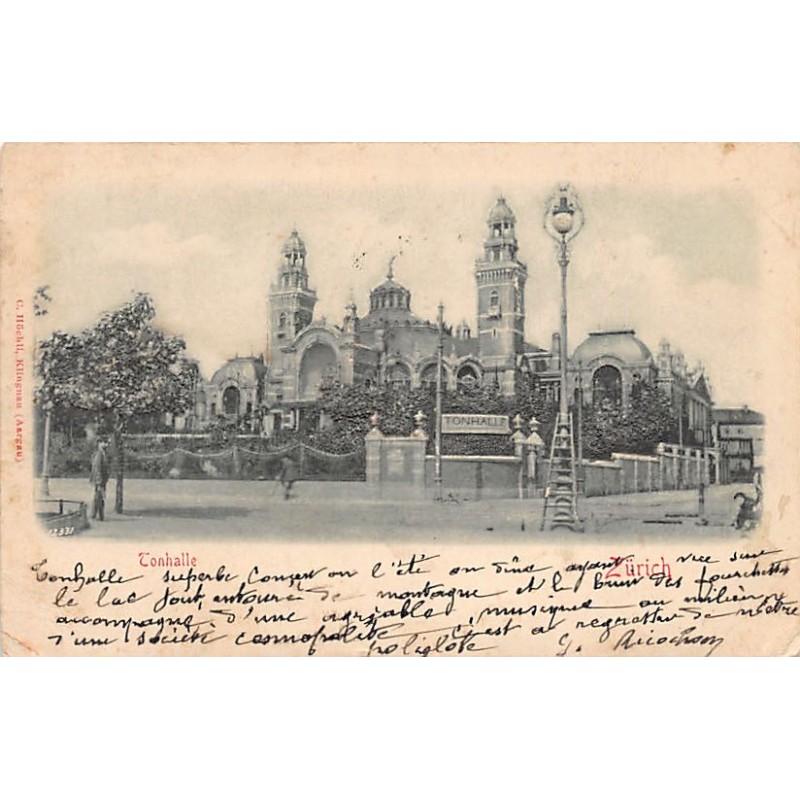 C. Höchli, Klingnau (Aargau)
TONHALLE
12331
Tonhalle
Zürich
Tonhalle superbe, Concert ou l'été on dîne ayant vue sur
le lac tout entouré de montagne et le bruit des fourchettes
accompagné d'une agréable musique au milieu
d'une société cosmopolite c'est à regretter de n'être
poliglote G.